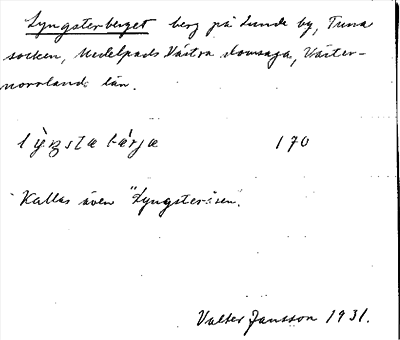 Lyngsterberget berg på Lunde by, Tuna
socken, Medelpads Västra domsaga, Väster-
norrlands län.
170
Kallas även "Lyngsteråsen".
Valter Jansson 1931.